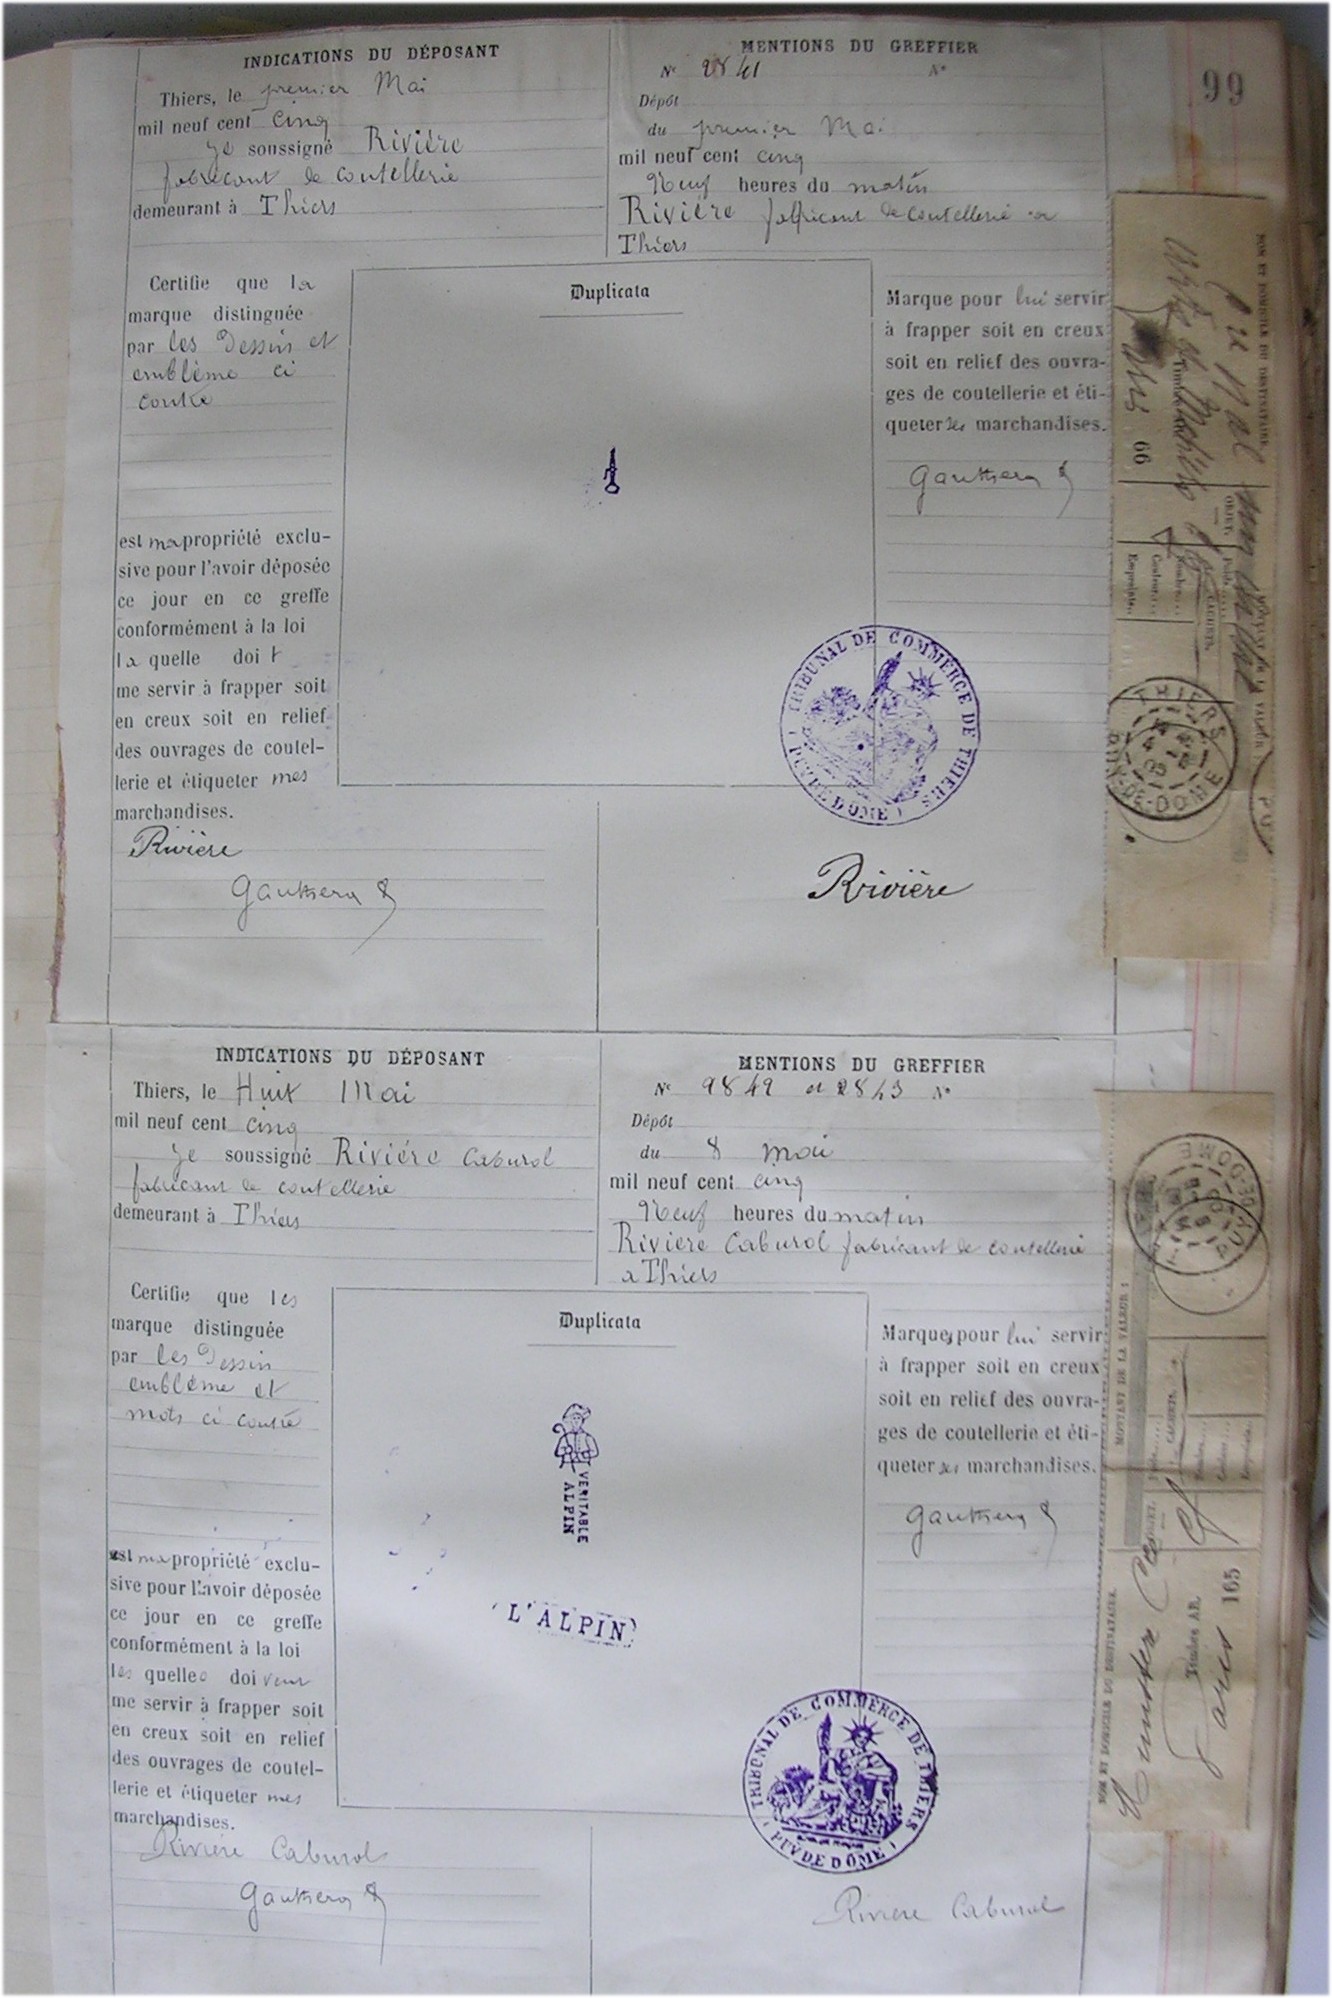 99
INDICATIONS DU DÉPOSANT
Thiers, le premier Mai
mil neuf cent cinq
je soussigné Rivière
fabricant de coutellerie
demeurant à Thiers
MENTIONS DU GREFFIER
N° 2841 N°
Dépôt
du premier Mai
mil neuf cent cinq
Neuf heures du matin
Rivière fabricant de coutellerie a
Thiers
Certifie que la
marque distinguée
par les Dessin et
emblème ci
contre
est ma propriété exclu-
sive pour l'avoir déposée
ce jour en ce greffe
conformément à la loi
la quelle doit
me servir à frapper soit
en creux soit en relief
des ouvrages de coutel-
lerie et étiqueter mes
marchandises.
Rivière
Duplicata
Marque pour lui servir
à frapper soit en creux
soit en relief des ouvra-
ges de coutellerie et éti-
queter ses marchandises.
TRIBUNAL DE COMMERCE DE THIERS
(PUY DE DÔME)
Rivière
INDICATIONS DU DÉPOSANT
Thiers, le Huit Mai
mil neuf cent cinq
je soussigné Rivière Caburol
fabricant de coutellerie
demeurant à Thiers
MENTIONS DU GREFFIER
N° 2842 et 2843 N°
Dépôt
du 8 mai
mil neuf cent cinq
Neuf heures du matin
Rivière Caburol fabricant de coutellerie
a Thiers
Certifie que les
marque distinguée
par les Dessin
emblème et
mots ci contre
est ma propriété exclu-
sive pour l'avoir déposée
ce jour en ce greffe
conformément à la loi
les quelles doivent
me servir à frapper soit
en creux soit en relief
des ouvrages de coutel-
lerie et étiqueter mes
marchandises.
Rivière Caburol
Duplicata
VERITABLE
ALPIN
L'ALPIN
Marques pour lui servir
à frapper soit en creux
soit en relief des ouvra-
ges de coutellerie et éti-
queter ses marchandises.
TRIBUNAL DE COMMERCE DE THIERS
(PUY DE DÔME)
Rivière Caburol
NOM ET DOMICILE DU DESTINATAIRE
66
OBJET.
CACHETS.
THIERS
PUY-DE-DOME
MONTANT DE LA VALEUR :
CACHETS.
NOM ET DOMICILE DU DESTINATAIRE.
Timbre AR.
Paris 165
PUY-DE-DOME